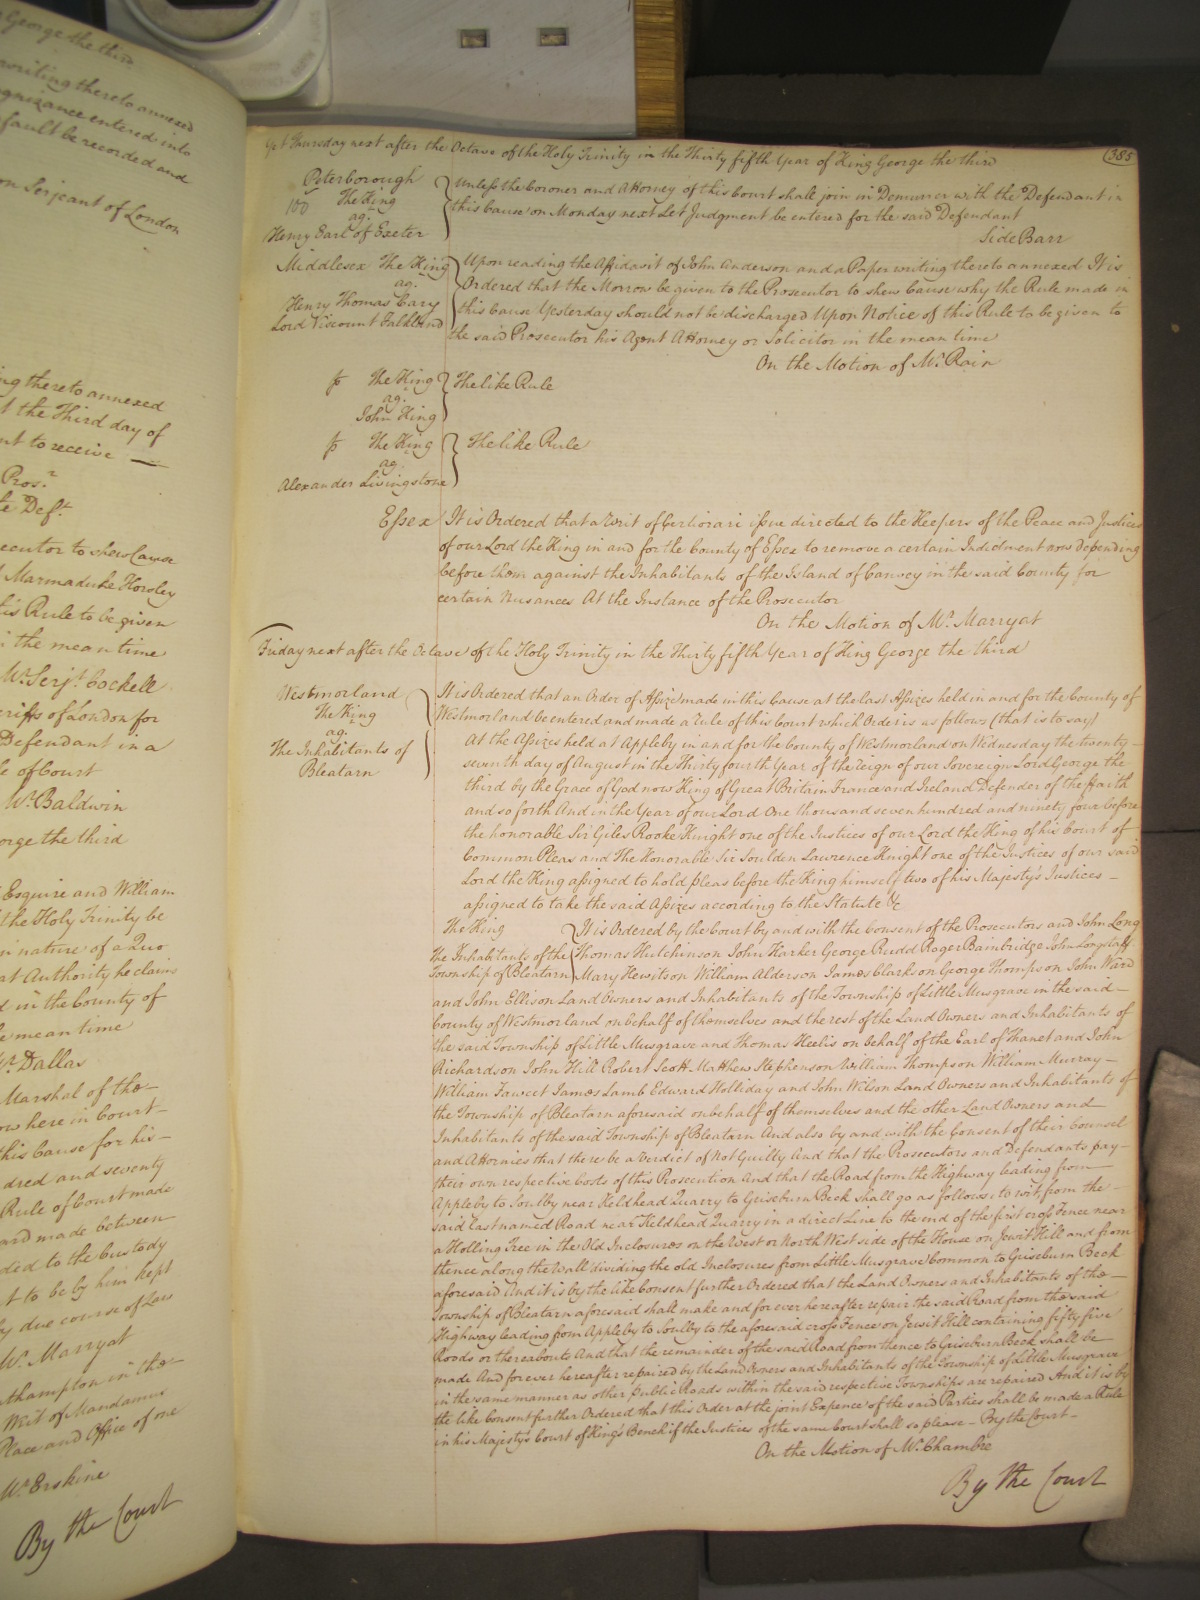 George the third
writing thereto annexed
ognizance entered into
fault be recorded and
on Serjeant of London
ng thereto annexed
t the Third day of
nt to receive
Pros.r
te Def.t
ecutor to shew Cause
Marmaduke Horsley
this Rule to be given
the mean time
Mr. Serjt. Cockell
eriffs of London for
Defendant in a
le of Court
Mr. Baldwin
orge the third
Esquire and William
the Holy Trinity be
n nature of a Quo
at Authority he claims
d in the County of
e mean time
Mr. Dallas
Marshal of the
ow here in Court
this Cause for his
dred and seventy
Rule of Court made
ard made between
ded to the Custody
t to be by him kept
by due course of Law
Mr. Marryat
thampton in the
Writ of Mandamus
Place and Office of one
Mr. Erskine
By the Court
Yet Thursday next after the Octave of the Holy Trinity in the Thirty fifth Year of King George the third
385
Peterborough
100 The King
ag.
Henry Earl of Exeter
Unless the Coroner and Attorney of this Court shall join in Demurrer with the Defendant in
this Cause on Monday next Let Judgment be entered for the said Defendant
Side Barr
Middlesex The King
ag.
Henry Thomas Cary
Lord Viscount Falkland
Upon reading the Affidavit of John Anderson and a Paper writing thereto annexed It is
Ordered that the Morrow be given to the Prosecutor to shew Cause why the Rule made in
this Cause Yesterday should not be discharged Upon Notice of this Rule to be given to
the said Prosecutor his Agent Attorney or Solicitor in the mean time
On the Motion of Mr. Rain
The King
ag.
John King
The like Rule
The King
ag.
Alexander Livingstone
The like Rule
Essex
It is Ordered that a Writ of Certiorari issue directed to the Keepers of the Peace and Justices
of our Lord the King in and for the County of Essex to remove a certain Indictment now depending
before them against the Inhabitants of the Island of Canvey in the said County for
certain Nusances At the Instance of the Prosecutor
On the Motion of Mr. Marryat
Friday next after the Octave of the Holy Trinity in the Thirty fifth Year of King George the third
Westmorland
The King
ag.
The Inhabitants of
Bleatarn
It is Ordered that an Order of Assize made in this Cause at the last Assizes held in and for the County of
Westmorland be entered and made a rule of this Court which Order is as follows (that is to say)
At the Assizes held at Appleby in and for the County of Westmorland on Wednesday the twenty
seventh day of August in the Thirty fourth Year of the Reign of our Sovereign Lord George the
third by the Grace of God now King of Great Britain France and Ireland Defender of the Faith
and so forth And in the Year of our Lord One thousand seven hundred and ninety four before
the honorable Sir Giles Rooke Knight one of the Justices of our Lord the King of his Court of
Common Pleas and The Honorable Sir Soulden Lawrence Knight one of the Justices of our said
Lord the King assigned to hold pleas before the King himself two of his Majesty's Justices
assigned to take the said Assizes according to the Statute &c
The King
The Inhabitants of the
Township of Bleatarn
It is Ordered by the Court by and with the Consent of the Prosecutors and John Long
Thomas Hutchinson John Harker George Rudd Roger Bainbridge John Longstaff
Mary Hewitson William Alderson James Clarkson George Thompson John Ward
and John Ellison Land Owners and Inhabitants of the Township of Little Musgrave in the said
County of Westmorland on behalf of themselves and the rest of the Land Owners and Inhabitants of
the said Township of Little Musgrave and Thomas Heelis on behalf of the Earl of Thanet and John
Richardson John Hill Robert Scott Matthew Stephenson William Thompson William Murray
William Fawcet James Lamb Edward Holliday and John Wilson Land Owners and Inhabitants of
the Township of Bleatarn aforesaid on behalf of themselves and the other Land Owners and
Inhabitants of the said Township of Bleatarn And also by and with the Consent of their Counsel
and Attornies that there be a Verdict of Not Guilty And that the Prosecutors and Defendants pay
their own respective Costs of this Prosecution And that the Road from the Highway leading from
Appleby to Soulby near Keldhead Quarry to Griseburn Beck shall go as follows to wit from the
said last named Road near Keldhead Quarry in a direct Line to the end of the first cross Fence near
a Holling Tree in the Old Inclosures on the West or North West side of the House on Jewit Hill and from
thence along the Wall dividing the old Inclosures from Little Musgrave Common to Griseburn Beck
aforesaid And it is by the like Consent further Ordered that the Land Owners and Inhabitants of the
Township of Bleatarn aforesaid shall make and for ever hereafter repair the said Road from the said
Highway leading from Appleby to Soulby to the aforesaid cross Fence on Jewit Hill containing fifty five
Roods or thereabouts And that the remainder of the said Road from thence to Griseburn Beck shall be
made And for ever hereafter repaired by the Land Owners and Inhabitants of the Township of Little Musgrave
in the same manner as other public Roads within the said respective Townships are repaired And it is by
the like Consent further Ordered that this Order at the joint Expence of the said Parties shall be made a Rule
in his Majesty's Court of King's Bench if the Justices of the same Court shall so please By the Court
On the Motion of Mr. Chambre
By the Court